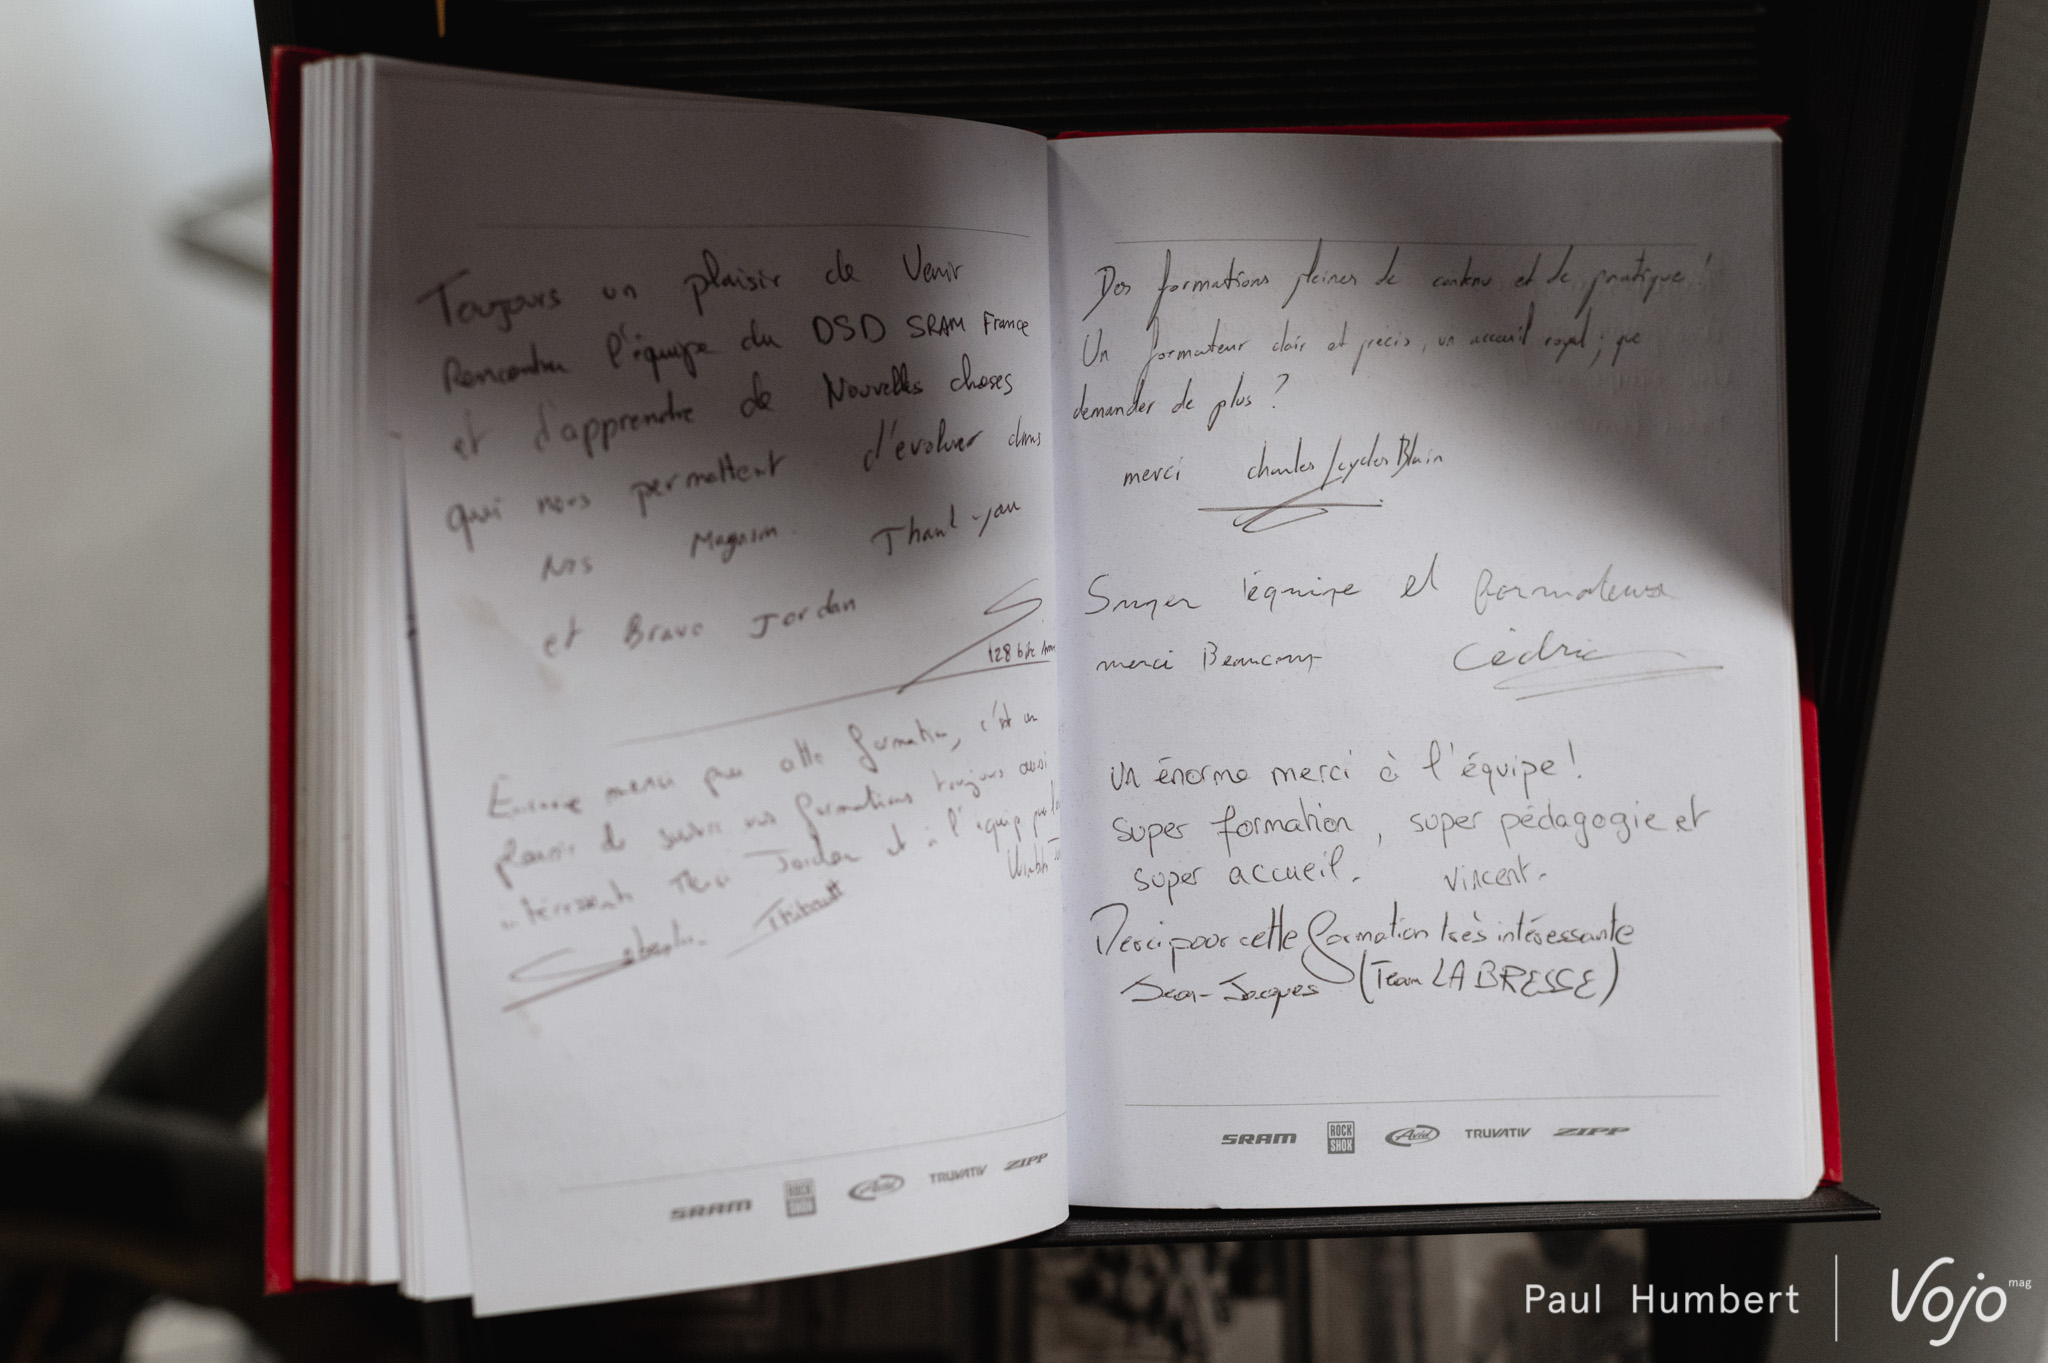 Toujours un plaisir de Venir
Rencontrer l'équipe du DSD SRAM France
et d'apprendre de Nouvelles choses
qui nous permettent d'évoluer dans
Nos Magasin. Thank-you
et Bravo Jordan
128 bike
Encore merci pour cette formation, c'est un
plaisir de suivre vos formations toujours aussi
intéressants Merci Jordan et à l'équip
Thibault
SRAM ROCK SHOX Avid TRUVATIV ZIPP
Des formations pleines de contenu et de pratique!
Un formateur clair et précis, un accueil royal; que
demander de plus ?
merci charles Blain
Super l'équipe et formateur
merci Beaucoup Cédric
Un énorme merci à l'équipe!
super formation, super pédagogie et
super accueil. Vincent.
Merci pour cette formation très intéressante
Jean-Jacques (Team LA BRESSE)
SRAM ROCK SHOX Avid TRUVATIV ZIPP
Paul Humbert Vojo mag